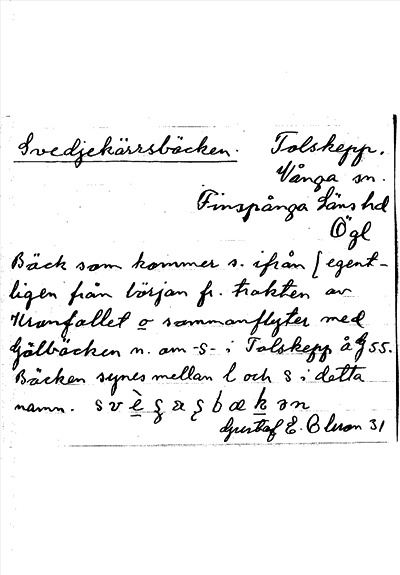 Svedjekärrsbäcken. Tolskepp.
Vånga sn.
Finspånga Läns hd
Ögl
Bäck som kommer s. ifrån [egent-
ligen från början fr. trakten av
Kronfallet o sammanflyter med
Gölbäcken n. om -S- i Tolskepp å G 55.
Bäcken synes mellan l och s i detta
namn.
Gustaf E. Olsson 31